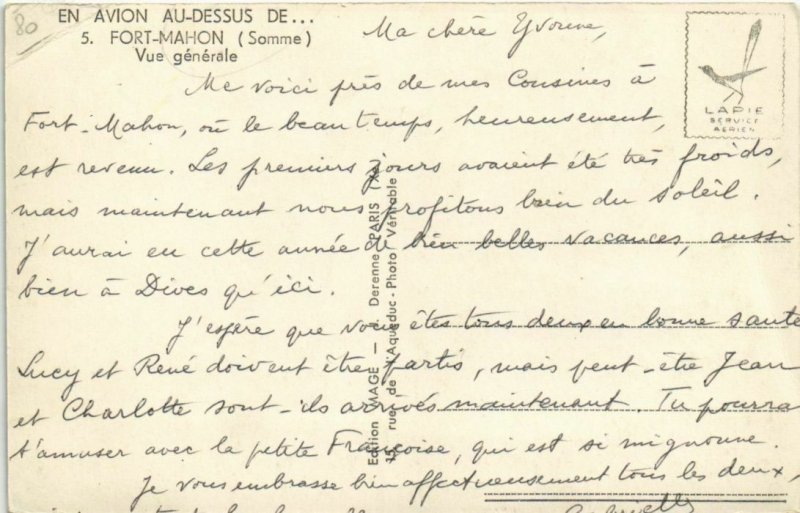 80
EN AVION AU-DESSUS DE...
5. FORT-MAHON (Somme)
Vue générale
LAPIE
SERVICE
AERIEN
Ma chère Yvonne,
Me voici près de mes Cousines à
Fort-Mahon, où le beau temps, heureusement,
est revenu. Les premiers jours avaient été très froids,
mais maintenant nous profitons bien du soleil.
J'aurai eu cette année de bien belles vacances, aussi
bien à Dives qu'ici.
J'espère que vous êtes tous deux en bonne santé
Lucy et René doivent être partis, mais peut-être Jean
et Charlotte sont-ils arrivés maintenant. Tu pourra
t'amuser avec la petite Françoise, qui est si mignonne.
Je vous embrasse bien affectueusement tous les deux,
Gabrielle
Edition MAGE — Derenne, PARIS
15, rue de l'Aqueduc - Photo Véritable